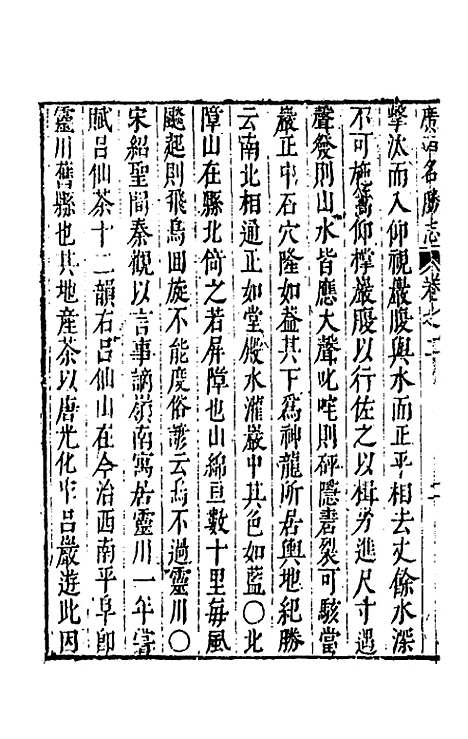 廣西名勝志 卷之二
擊汰而入仰視巖腹與水面正平相去丈餘水深
不可施篙仰撐巖腹以行佐之以楫勞進尺寸遇
聲發則山水皆應大聲叱咤則砰隱轟裂可駭當
巖正中石穴隆如葢其下爲神龍所居輿地紀勝
云南北相通正如堂厦水灌巖中其色如藍〇北
障山在縣北倚之若屏障也山綿亘數十里每風
颷起則飛鳥回旋不能度俗諺云鳥不過靈川〇
宋紹聖間秦觀以言事謫嶺南寓居靈川一年嘗
賦呂仙茶十二韻右呂仙山在今治西南平阜卽
靈川舊縣也其地産茶以唐光化年呂巖遊此因